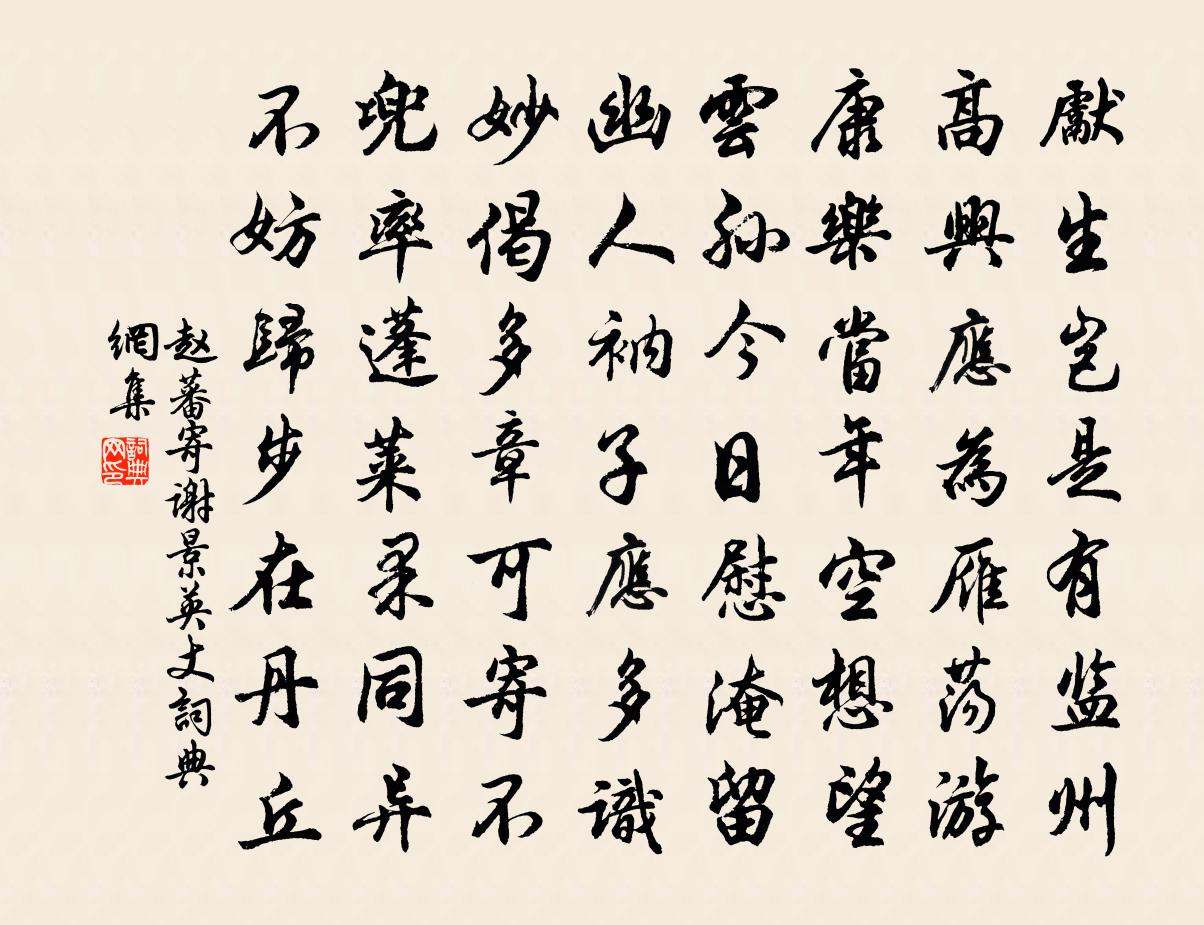 獻生豈是有监州
高興應為雁荡游
康樂當年空想望
雲孫今日慰淹留
幽人衲子應多識
妙偈多章可寄不
兜率蓬萊果同异
不妨歸步在丹丘
赵蕃寄謝景英丈詞典
網集
詞典
网印